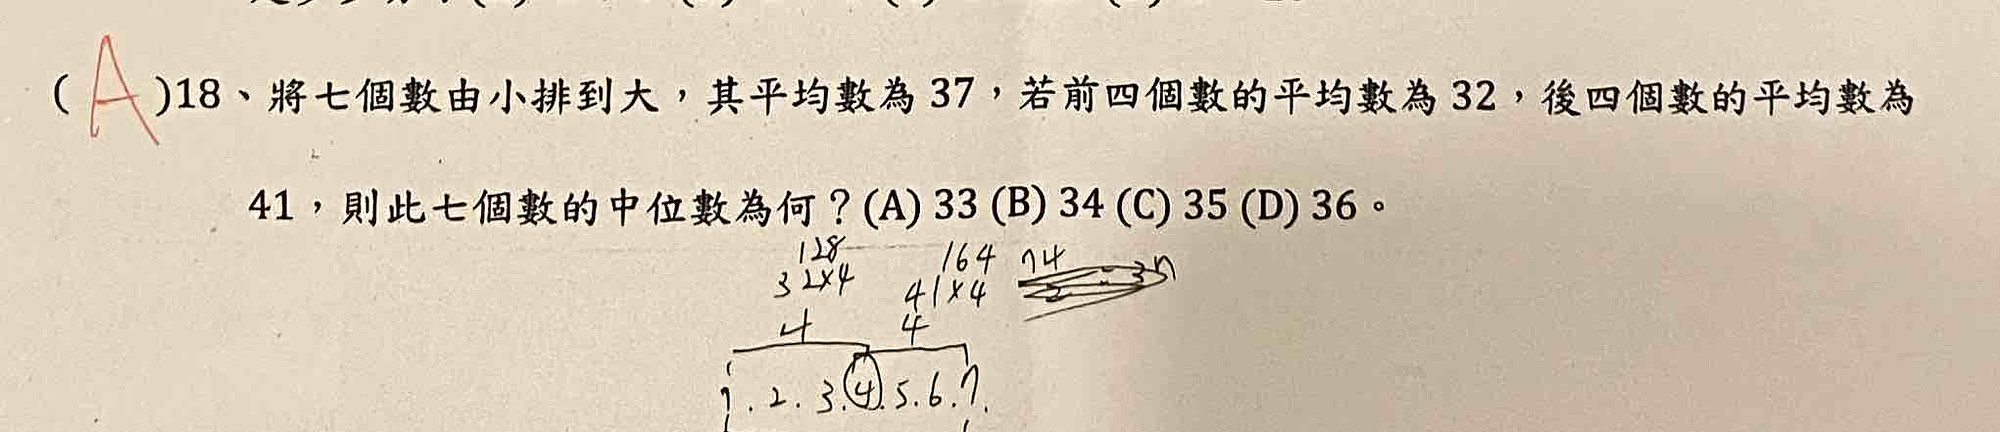 (A)18、將七個數由小排到大，其平均數為 37，若前四個數的平均數為 32，後四個數的平均數為
41，則此七個數的中位數為何？(A) 33 (B) 34 (C) 35 (D) 36。
128 164 74
32×4 41×4
4 4
1.2.3.4.5.6.7.